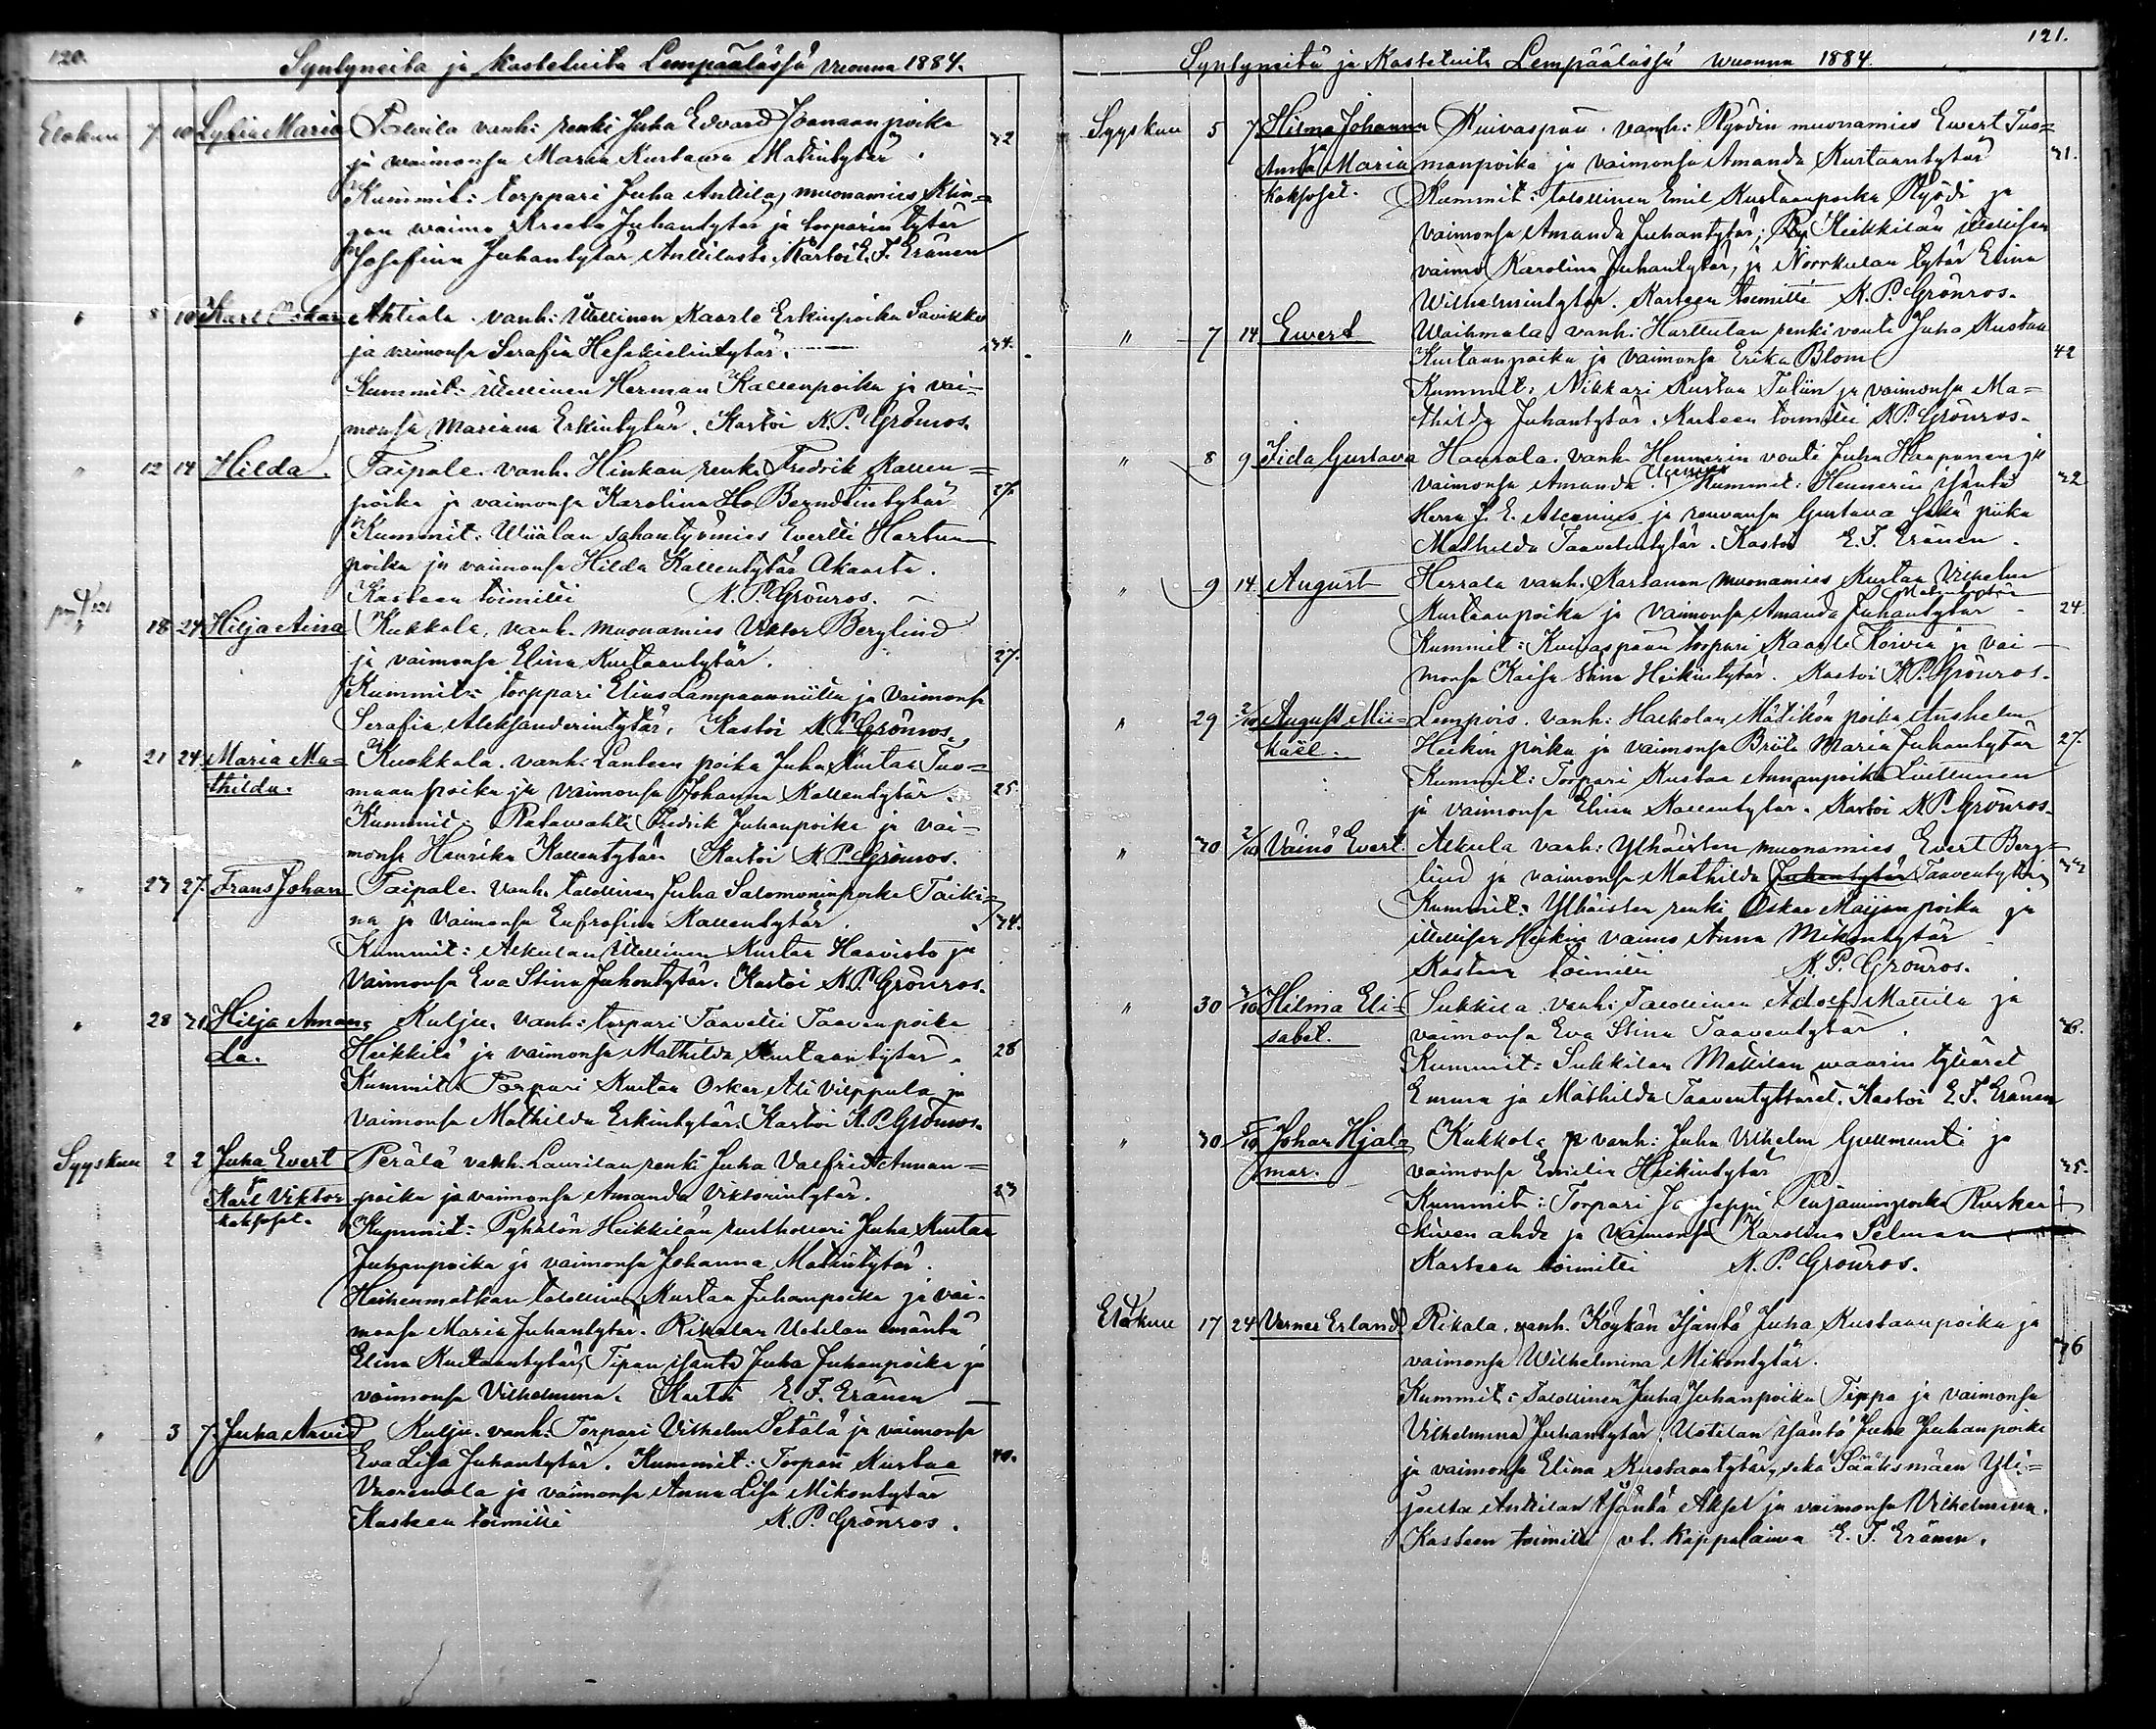 120.
Syntyneita ja kasteluita Lempäälässä vuonna 1884.
Elokuu 7. 10 Lydia Maria vanh: renki Juha Edvard Joonaanpoika 32
ja vaimonsa Maria Kustaava Matintytär.
Kummit: torppari Juha Anttila, muonamies Klin=
gon waimo Kreeta Juhantytär ja torparin tytär
Josefiina Juhantytär Anttilasta. Kastoi E. F. Eränen
" 8 10 Karl Oskar Ahtiala. vanh: itsellinen Kaarle Erkinpoika Savikko
ja vaimonsa Serafia Hesekielintytär. 34.
Kummit: itsellinen Herman Kallenpoika ja vai=
monsa Mariana Erkintytär. Kastoi K. P. Grönros.
" 12 14 Hilda. Taipale. vanh. Hinkan renki Fredrik Kallen=
poika ja vaimonsa Karolina Berndtintytär 27.
Kummit: Wiialan sahantyömies Evertti Hartun
poika ja vaimonsa Hilda Kallentytär Akaasta.
Kasteen toimitti K. P. Grönros.
18 24 Hilja Aina Kukkola, vanh. muonamies Viktor Berglind
ja vaimonsa Elina Kustaantytär. 27.
Kummit: torppari Elias Lampaanniittu ja vaimonsa
Serafia Aleksanderintytär. Kastoi K. P. Grönros.
" 21 24 Maria Ma= Kuokkala. vanh: Lauteen poika Juha Kustaa Tuo=
thilda. maanpoika ja vaimonsa Johanna Kallentytär. 25
Kummit: Ratawahti Fredrik Juhanpoika ja vai=
monsa Henrika Kallentytär. Kastoi K. P. Grönros.
" 23 27. Frans Johan Taipale. vanh. talollinen Juha Salomoninpoika Taiki=
na ja vaimonsa Eufrosina Kallentytär. 34.
Kummit: Alkulan itsellinen Kustaa Haavisto ja
vaimonsa Eva Stina Juhontytär. Kastoi K. P. Grönros.
" 28 31 Hilja Aman= Kulju. vanh: torpari Taavetti Taavanpoika
da. Heikkilä ja vaimonsa Mathilda Kustaantytär. 28
Kummit: Torpari Kustaa Oskar Ali Vilppula ja
vaimonsa Mathilda Erkintytär. Kastoi K. P. Grönros.
Syyskuu 2 2 Juha Evert Perälä vanh. Laurilan renki Juha Valfrid Annan=
ja
Karl Viktor poika ja vaimonsa Amanda Viktorintytär. 23
kaksoset. Kummit: Pyhälön Heikkilän rusthollari Juha Kustaa
Juhanpoika ja vaimonsa Johanna Matintytär.
talollinen Kustaa Juhanpoika ja vai=
monsa Maria Juhantytär. Rikalan Uotilan emäntä
Elina Kustaantytär, Tipan isäntä Juha Juhanpoika ja
vaimonsa Vilhelmina. Kastoi E. F. Eränen
" 3 7. Juha Arvid Kulju. vanh. Torpari Vilhelm Setälä ja vaimonsa
Eva Lisa Juhantytär. Kummit: Torpari Kustaa 40.
Vuorenala ja vaimonsa Anna Lisa Mikontytär
Kasteen toimitti K. P. Grönros.
121.
Syntyneitä ja Kasteluita Lempäälässä wuonna 1884.
Syyskuu 5 7 Hilma Johanna Kuivaspää. vanh: Ryödin muonamies Ewert Tuo=
ja
Anna Maria manpoika ja vaimonsa Amanda Kustaantytär 31.
kaksoset. Kummit: talollinen Emil Kustaanpoika Ryödi ja
vaimonsa Amanda Juhantytär; Heikkilän itsellisen
vaimo Karolina Juhantytär, ja Norrkulan tytär Elina
Wilhelmintytär. Kasteen toimitti K. P. Grönros.
" 7 14 Ewert Waihmala, vanh: Harttulan renkivouti Juha Kustaa
Kustaanpoika ja vaimonsa Erika Blom 42
Kummit: Nikkari Kustaa Tulin ja vaimonsa Ma=
thilda Juhantytär. Kasteen toimitti K. P. Grönros.
" 8 9 Iida Gustava Haurala. vanh. Hennerin vouti Juha Haaponen ja
vaimonsa Amanda Kummit: Hennerin isäntä 32
Herra J. E. Alcenius ja rouvansa Gustava sekä piika
Mathilda Taavetintytär. Kastoi E. F. Eränen.
" 9 14. August Herrala vanh. muonamies Kustaa Vilhelm
Kustaanpoika ja vaimonsa Amanda Juhantytär 24.
Kummit: Kuivaspään torpari Kaarle Koivu ja vai=
monsa Kaisa Stina Heikintytär. Kastoi K. P. Grönros.
" 29 2/10 August Mii= Lempois. vanh: Hakkolan Mätikön poika Anshelm
kael. Heikinpoika ja vaimonsa Briita Maria Juhantytär 27.
Kummit: Torpari Kustaa Annanpoika
ja vaimonsa Elina Kallentytär. Kastoi K. P. Grönros.
" 30 2/10 Väinö Evert. Alkula vanh: Ylhäisten muonamies Evert Berg=
lind ja vaimonsa Mathilda Juhantytär Taaventytär 33
Kummit: Ylhäisten renki Oskar Maijanpoika ja
itsellisen Heikin vaimo Anna Mikontytär
Kasteen toimitti K. P. Grönros.
" 30 5/10 Hilma Eli= Sukkila. vanh: Talollinen Adolf Mattila ja
sabet. vaimonsa Eva Stina Taaventytär. 36.
Kummit: Sukkilan Mattilan waarin tyttäret
Emma ja Mathilda Taaventyttäret. Kastoi E. F. Eränen
" 30 5/10 Johan Hjal= Kukkola vanh: Juha Vilhelm Gullmunti ja
mar. vaimonsa Emilia Heikintytär 35.
Kummit: Torpari Jooseppi Penjaminpoika Rusken
kiven ahde ja vaimonsa Karolina Selman
Kasteen toimitti K. P. Grönros.
Elokuu 17 24 Verner Erland Rikala. vanh. Köykän Isäntä Juha Kustaanpoika ja
vaimonsa Wilhelmina Mikontytär. 36
Kummit: Talollinen Juha Juhanpoika Tippa ja vaimonsa
Vilhelmina Juhantytär, Uotilan isäntä Juha Juhanpoika
ja vaimonsa Elina Kustaantytär, sekä Sääksmäen Yli=
Anttilan isäntä Aksel ja vaimonsa Vilhelmiina.
Kasteen toimitti vt. kappalainen E. F. Eränen.